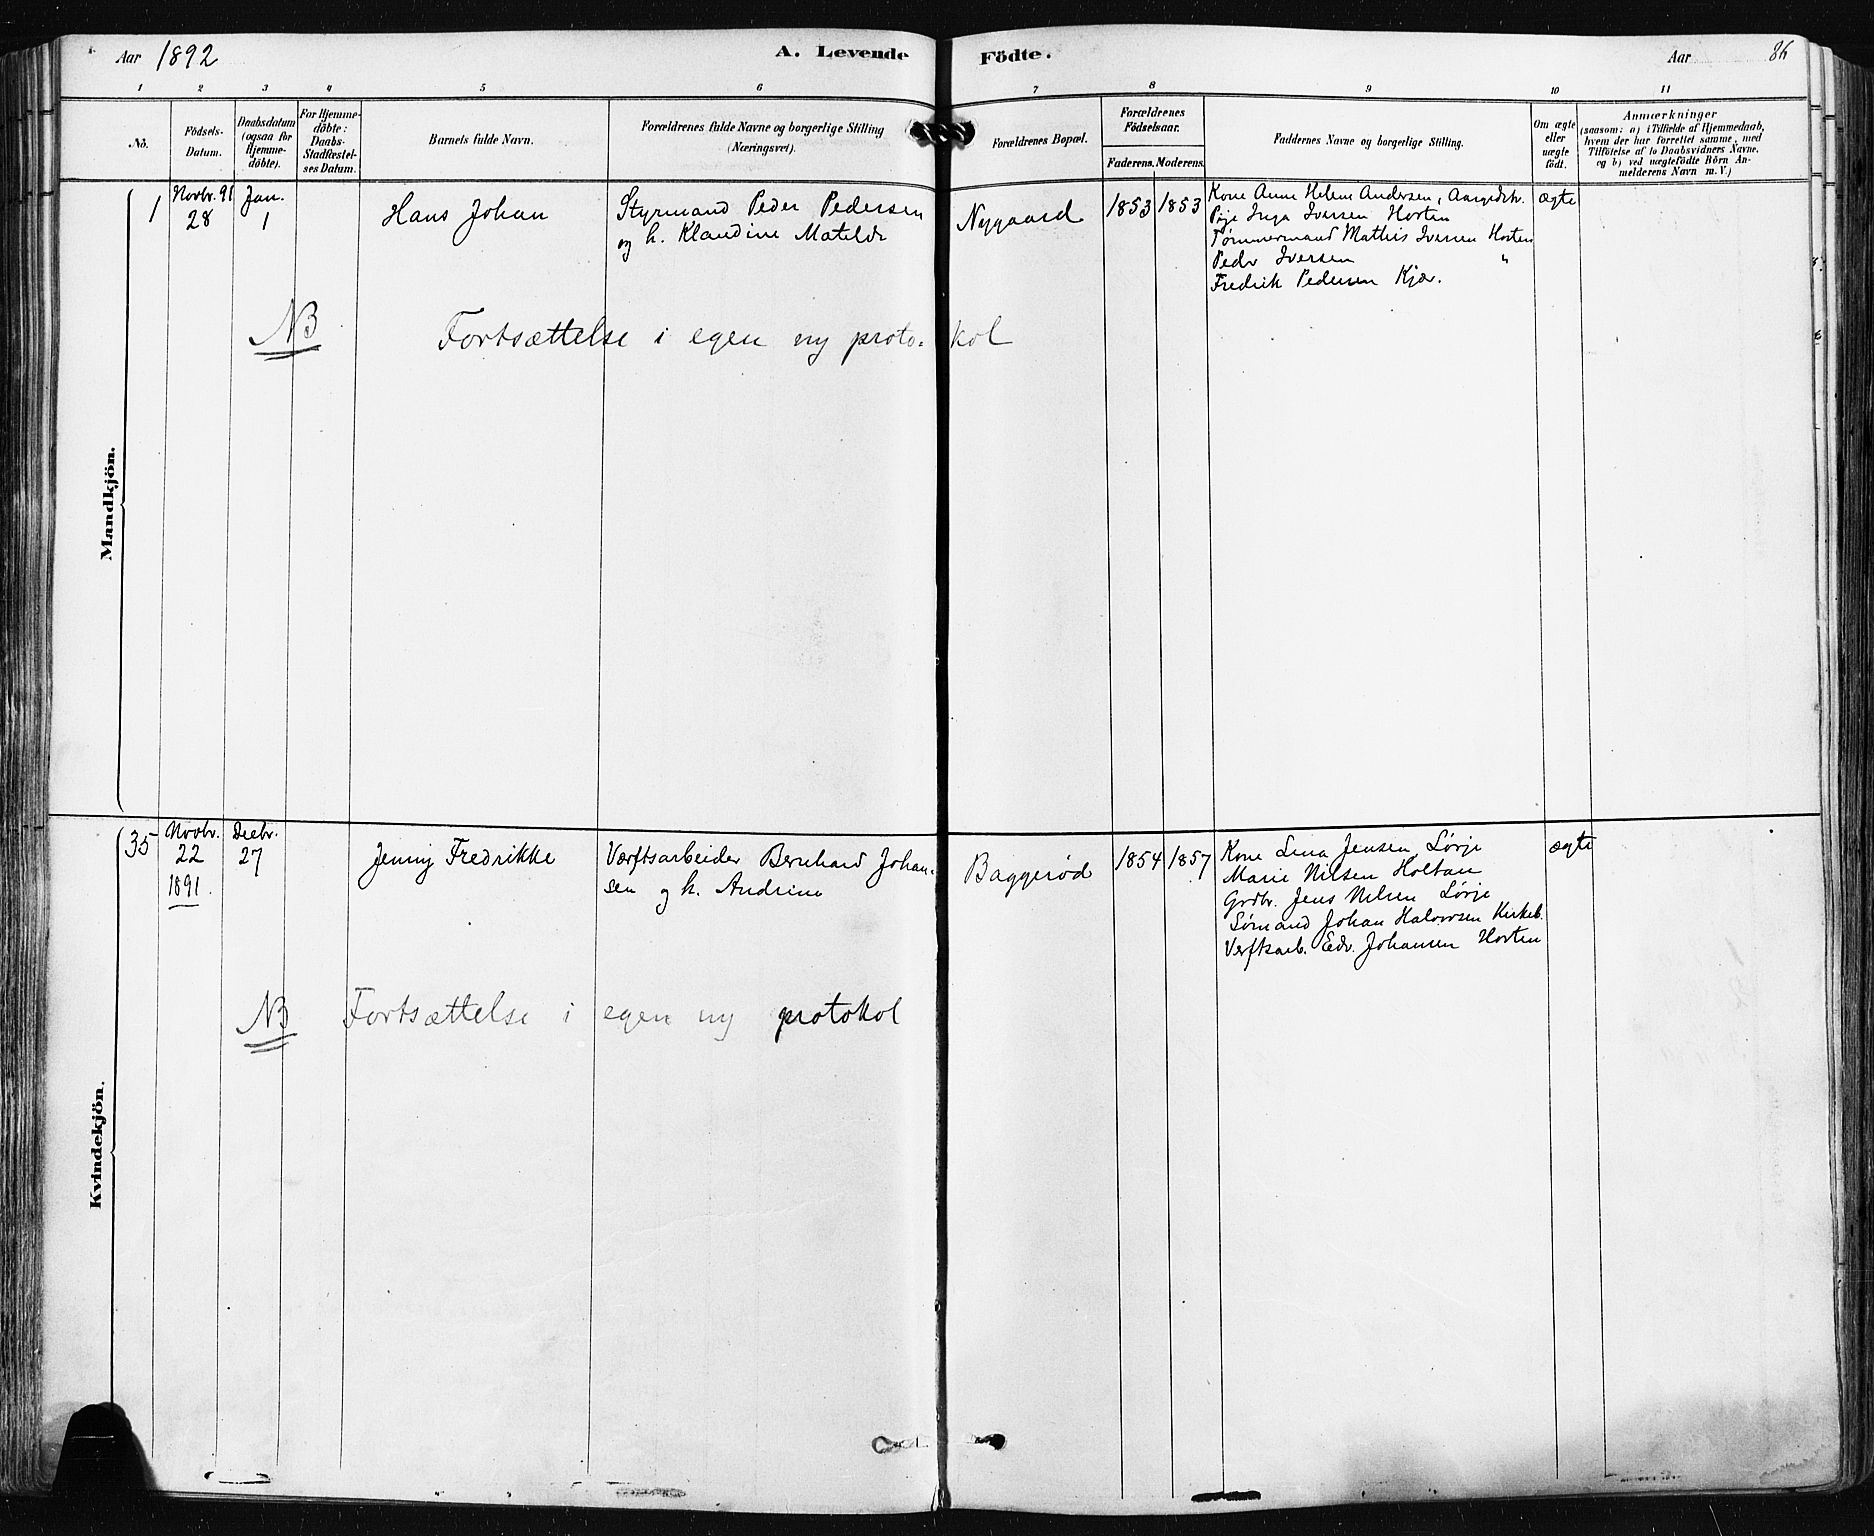 Aar 1892
A. Levende Födte.
Aar
86
1 2 3 4 5 6 7 8 9 10 11
No.
Födsels-
Datum.
Daabsdatum
(ogsaa for
Hjemme-
döbte).
For Hjemme-
döbte:
Daabs-
Stadfæstel-
ses Datum.
Barnets fulde Navn.
Forældrenes fulde Navne og borgerlige Stilling
(Næringsvei).
Forældrenes Bopæl.
Forældrenes
Födselsaar.
Faderens. Moderens.
Faddernes Navne og borgerlige Stilling.
Om ægte
eller
uægte
födt.
Anmærkninger
(saasom: a) i Tilfælde af Hjemmedaab,
hvem der har forrettet samme, med
Tilföielse af to Daabsvidners Navne.
og b) ved uægtefödte Börn An-
melderens Navn m. V.)
Mandkjön.
1
Novbr. 91
28
Jan.
1
Hans Johan
Styrmand Peder Pedersen
og h. Klaudine Matilde
Nygaard
1853 1853
Kone Anne Helene Andersen, Aargedstr.
Pige Inga Iversen Horten
Tømmermand Mathis Iversen Horten
Peder Iversen "
Fredrik Pedersen Kjær.
ægte
NB Fortsættelse i egen ny protokol
Kvindekjön.
35
Novbr.
22
1891.
Decbr.
27
Jenny Fredrikke
Værftsarbeider Bernhard Johan-
sen og h. Andrine
Baggerød
1854 1857
Kone Lina Jensen Lørje
Marie Nilsen Holtan
Grdbr. Jens Nilsen Lørje
Sømand Johan Halvorsen Kirkeb.
Verftsarb. Edv. Johansen Horten
ægte
NB Fortsættelse i egen ny protokol